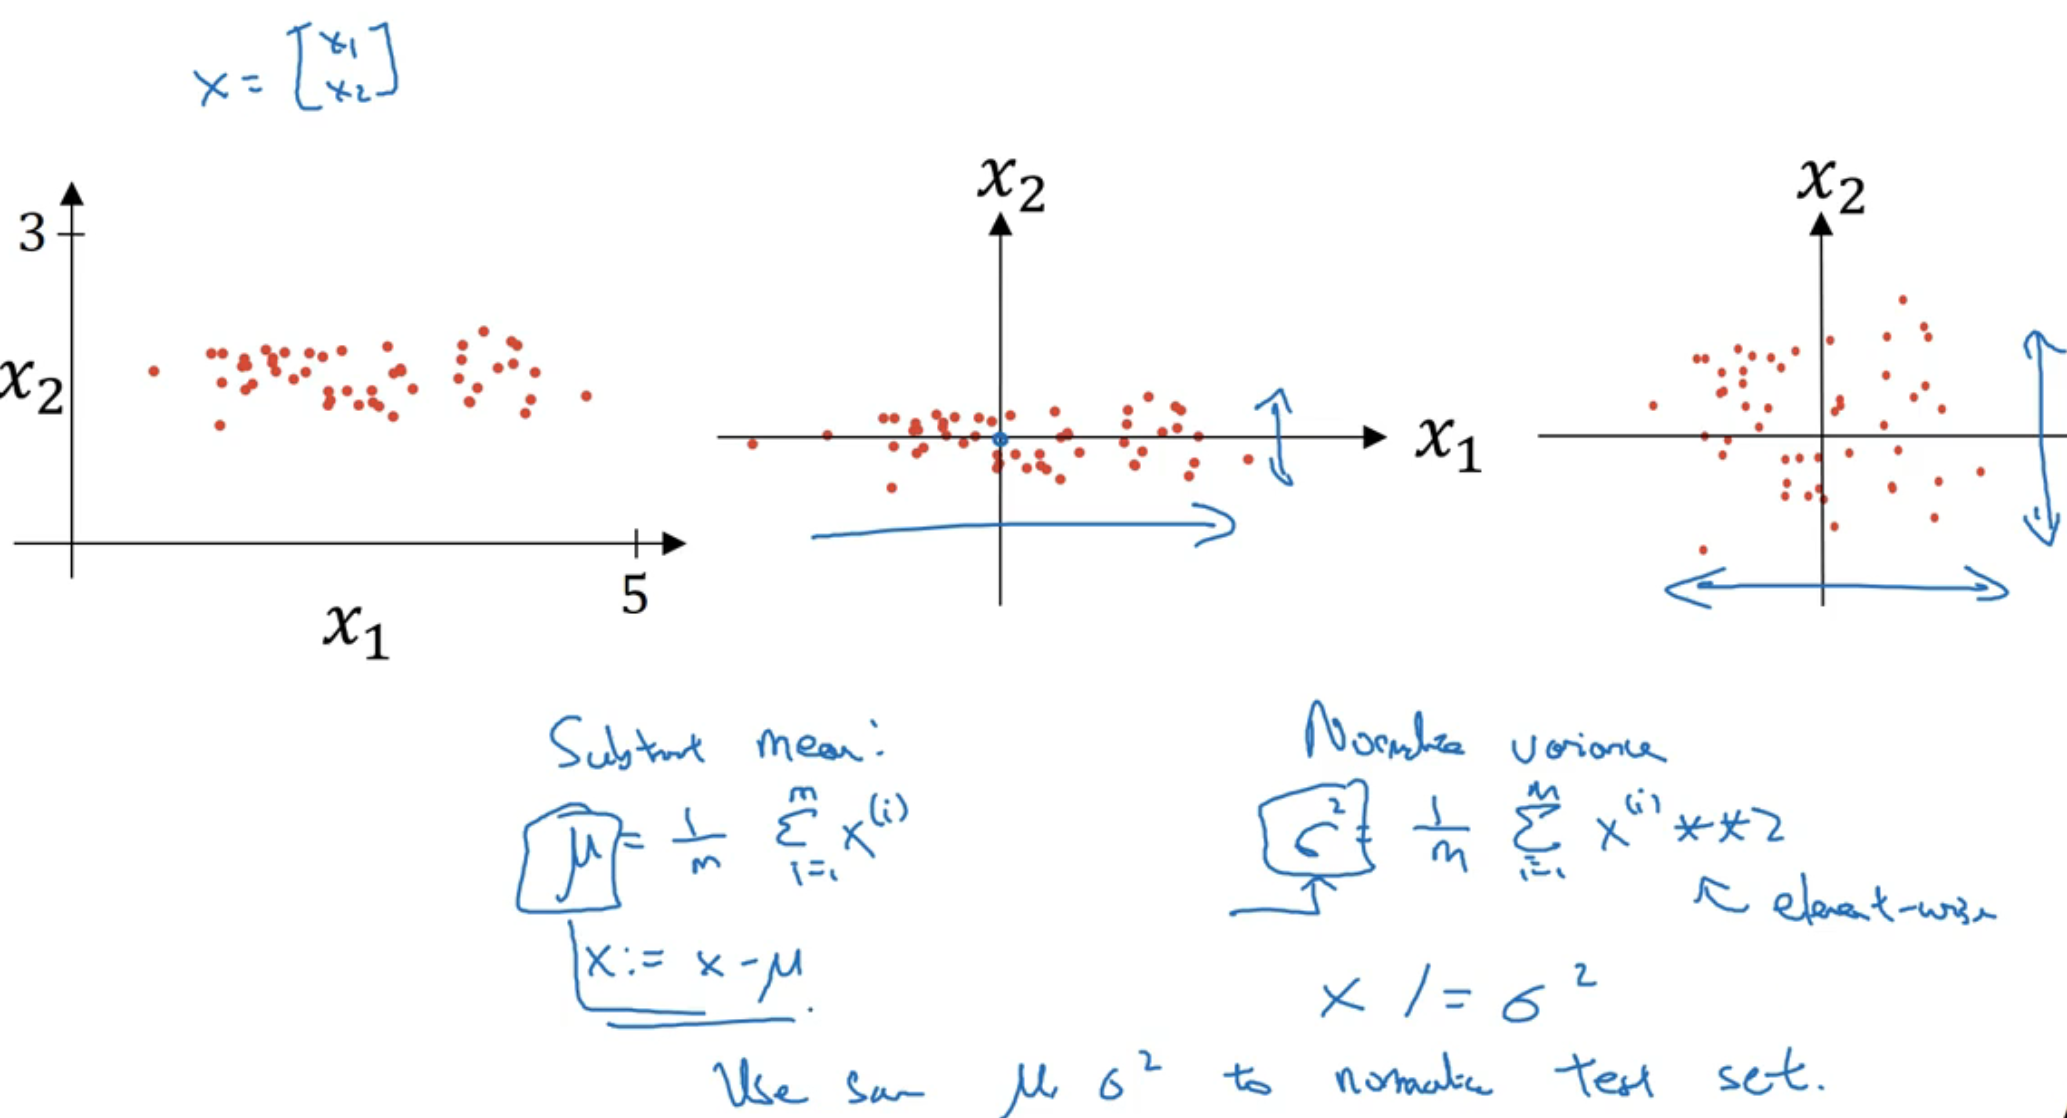 x = [x1
x2]
3
x2
x1
5
x2
x1
x2
Subtract mean:
μ = 1/m Σ i=1 m x(i)
x := x - μ
Normalize variance
σ² = 1/m Σ i=1 m x(i) **2
element-wise
x /= σ²
Use same μ, σ² to normalize test set.